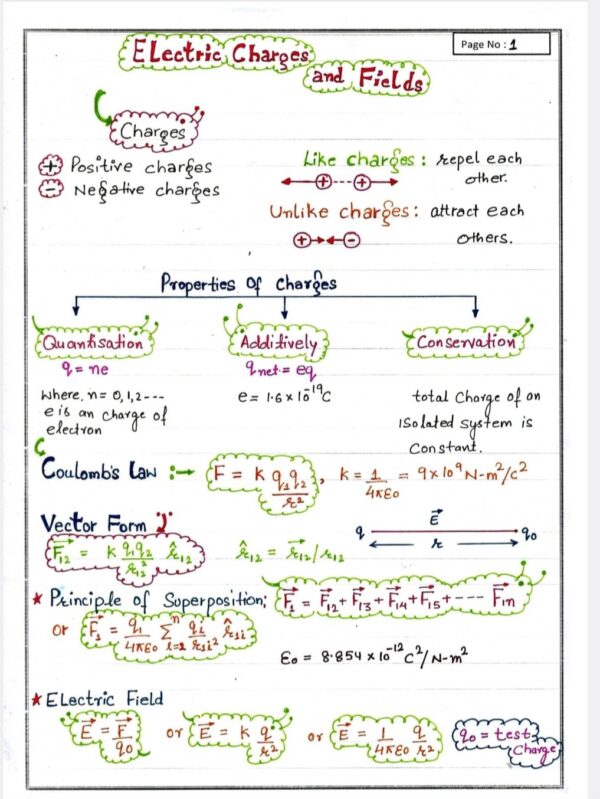 Page No : 1
Electric Charges
and Fields
Charges
+ Positive charges
- Negative charges
Like charges : repel each
other.
+ --- +
Unlike charges : attract each
others.
+ -
Properties of charges
Quantisation
q = ne
where, n = 0, 1, 2 ---
e is an charge of
electron
Additively
qnet = eq
e = 1.6 × 10⁻¹⁹C
Conservation
total charge of an
Isolated system is
Constant.
Coulomb's Law :→ F = K q₁q₂/r², K = 1/4πε₀ = 9 × 10⁹ N-m²/c²
Vector Form
F⃗₁₂ = K q₁q₂/r₁₂² r̂₁₂ r̂₁₂ = r⃗₁₂/r₁₂
q E⃗ q₀
r
* Principle of Superposition; F⃗₁ = F⃗₁₂ + F⃗₁₃ + F⃗₁₄ + F⃗₁₅ + --- F⃗₁n
or F⃗₁ = q₁/4πε₀ Σⁿᵢ₌₂ qᵢ/r₁ᵢ² r̂₁ᵢ
ε₀ = 8.854 × 10⁻¹² C²/N-m²
* Electric Field
E⃗ = F⃗/q₀ or E⃗ = K q/r² or E⃗ = 1/4πε₀ q/r²
q₀ = test
charge